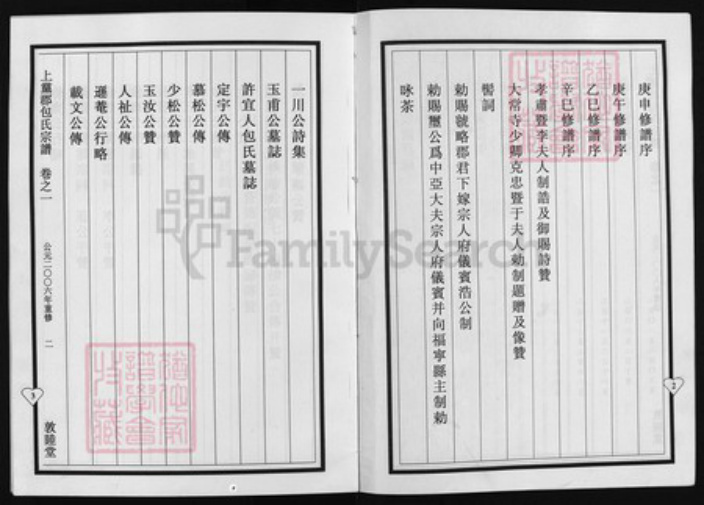 庚申修譜序
庚午修譜序
乙巳修譜序
辛巳修譜序
孝肅暨李夫人制誥及御賜詩贊
大常寺少卿克忠暨于夫人勅制題贈及像贊
髻詞
勅賜虢略郡君下嫁宗人府儀賓浩公制
勅賜 公爲中亞大夫宗人府儀賓并向福寧縣主制勅
咏茶
2
一川公詩集
玉甫公墓誌
許宜人包氏墓誌
定宇公傳
慕松公傳
少松公贊
玉汝公贊
人祉公傳
遯菴公行略
載文公傳
上黨郡包氏宗譜 卷之一 公元二〇〇六年重修 二 敦睦堂
3
FamilySearch